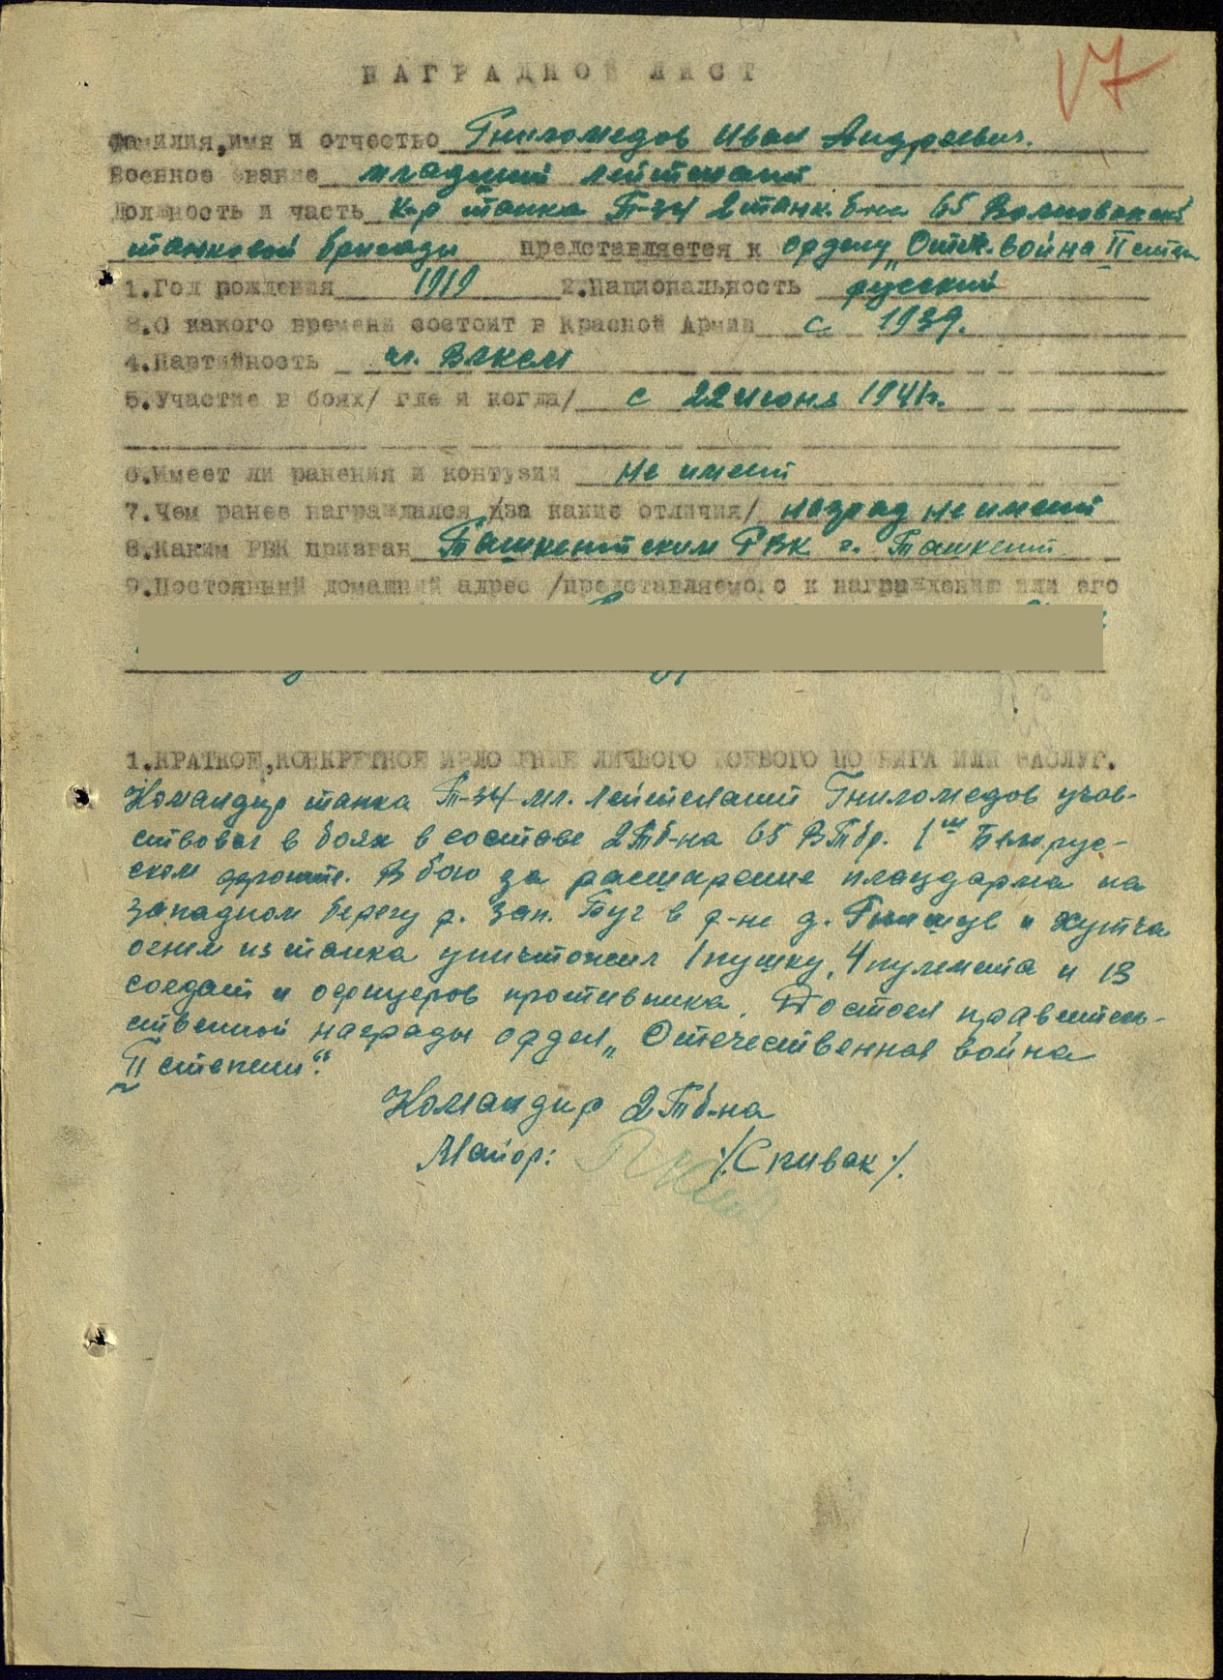 17
НАГРАДНОЙ ЛИСТ
Фамилия, имя и отчество Гниломедов Иван Андреевич.
Военное звание младший лейтенант
Должность и часть К-р танка Т-34 2 танк. б-на 65 Волновахской
танковой бригады представляется к ордену „Отеч. война II степ
1. Год рождения 1919 2. Национальность русский
3. С какого времени состоит в Красной Армии с 1939.
4. Партийность чл. ВЛКСМ
5. Участие в боях/ где и когда/ с 22 июня 1941 г.
6. Имеет ли ранения и контузии не имеет
7. Чем ранее награждался /за какие отличия/ наград не имеет
8. Каким РВК призван Ташкентским РВК г. Ташкент
9. Постоянный домашний адрес /представляемого к награждению или его
1. КРАТКОЕ, КОНКРЕТНОЕ ИЗЛОЖЕНИЕ ЛИЧНОГО БОЕВОГО ПОДВИГА ИЛИ ЗАСЛУГ.
Командир танка Т-34 мл. лейтенант Гниломедов учав-
ствовал в боях в составе 2 Тб-на 65 ВТбр. 1ом Белорус-
ском фронте. В бою за расширение плацдарма на
западном берегу р. Зап. Буг в р-не д. и Хутча
огнем из танка уничтожил 1 пушку, 4 пулемета и 13
солдат и офицеров противника. Достоин правитель-
ственной награды орден „Отечественная война
II степени".
Командир 2 Тб-на
Майор: /Спивак/.